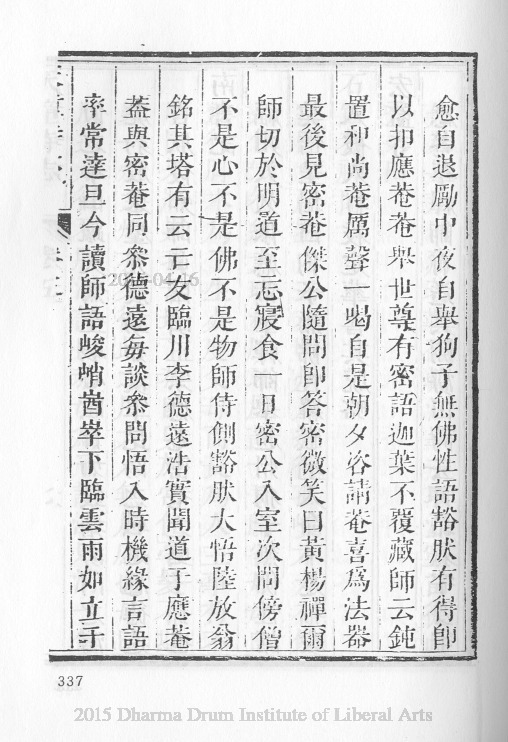 愈自退勵中夜自舉狗子無佛性語豁肰有得卽
以扣應菴菴舉世尊有密語迦葉不覆藏師云鈍
置和尚菴厲聲一喝自是朝夕咨請菴喜爲法器
最後見密菴傑公隨問卽答密微笑曰黃楊禪爾
師切於明道至忘寢食一日密公入室次問傍僧
不是心不是佛不是物師侍側豁肰大悟陸放翁
銘其塔有云云友臨川李德遠浩實聞道于應菴
葢與密菴同叅德遠每談叅問悟入時機緣言語
率常達旦今讀師語峻峭崷崒下臨雲雨如立千
337
2015 Dharma Drum Institute of Liberal Arts